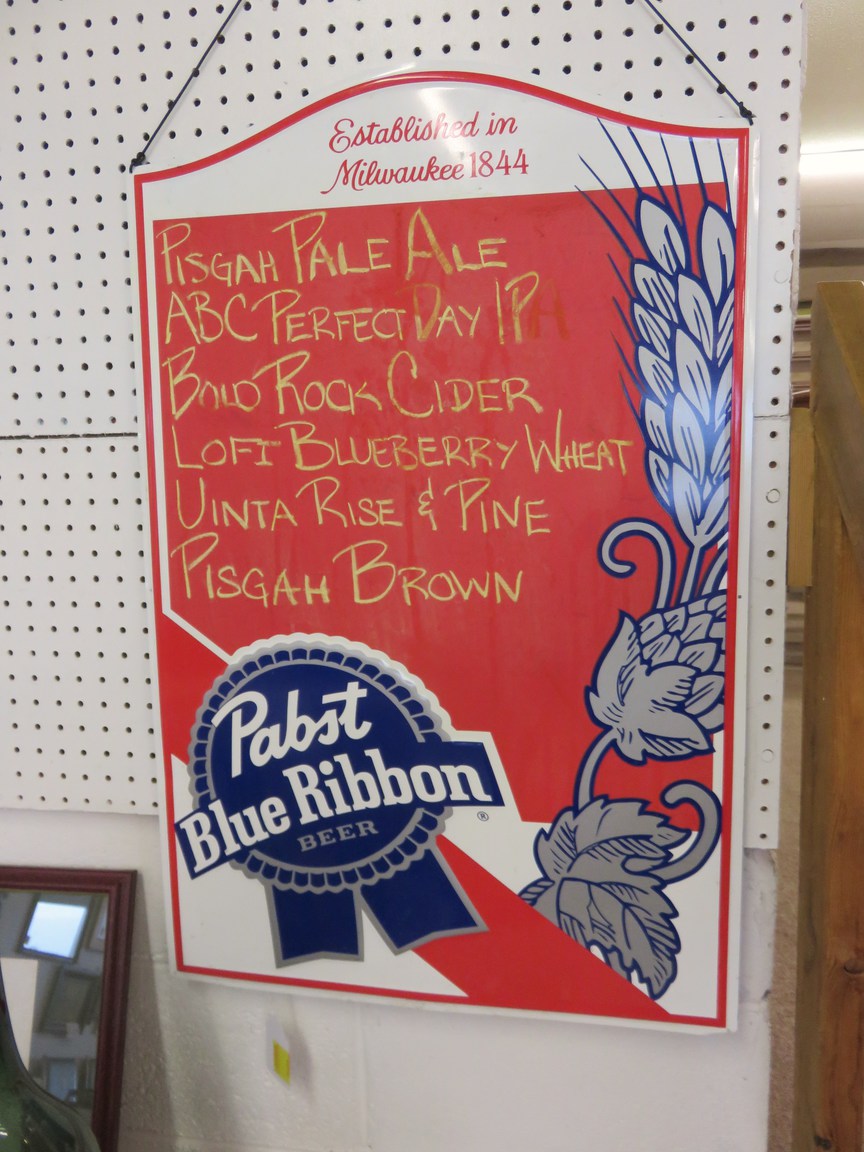 Established in
Milwaukee 1844
PISGAH PALE ALE
ABC PERFECT DAY IPA
BOLD ROCK CIDER
LOFI BLUEBERRY WHEAT
UINTA RISE & PINE
PISGAH BROWN
Pabst
Blue Ribbon®
BEER